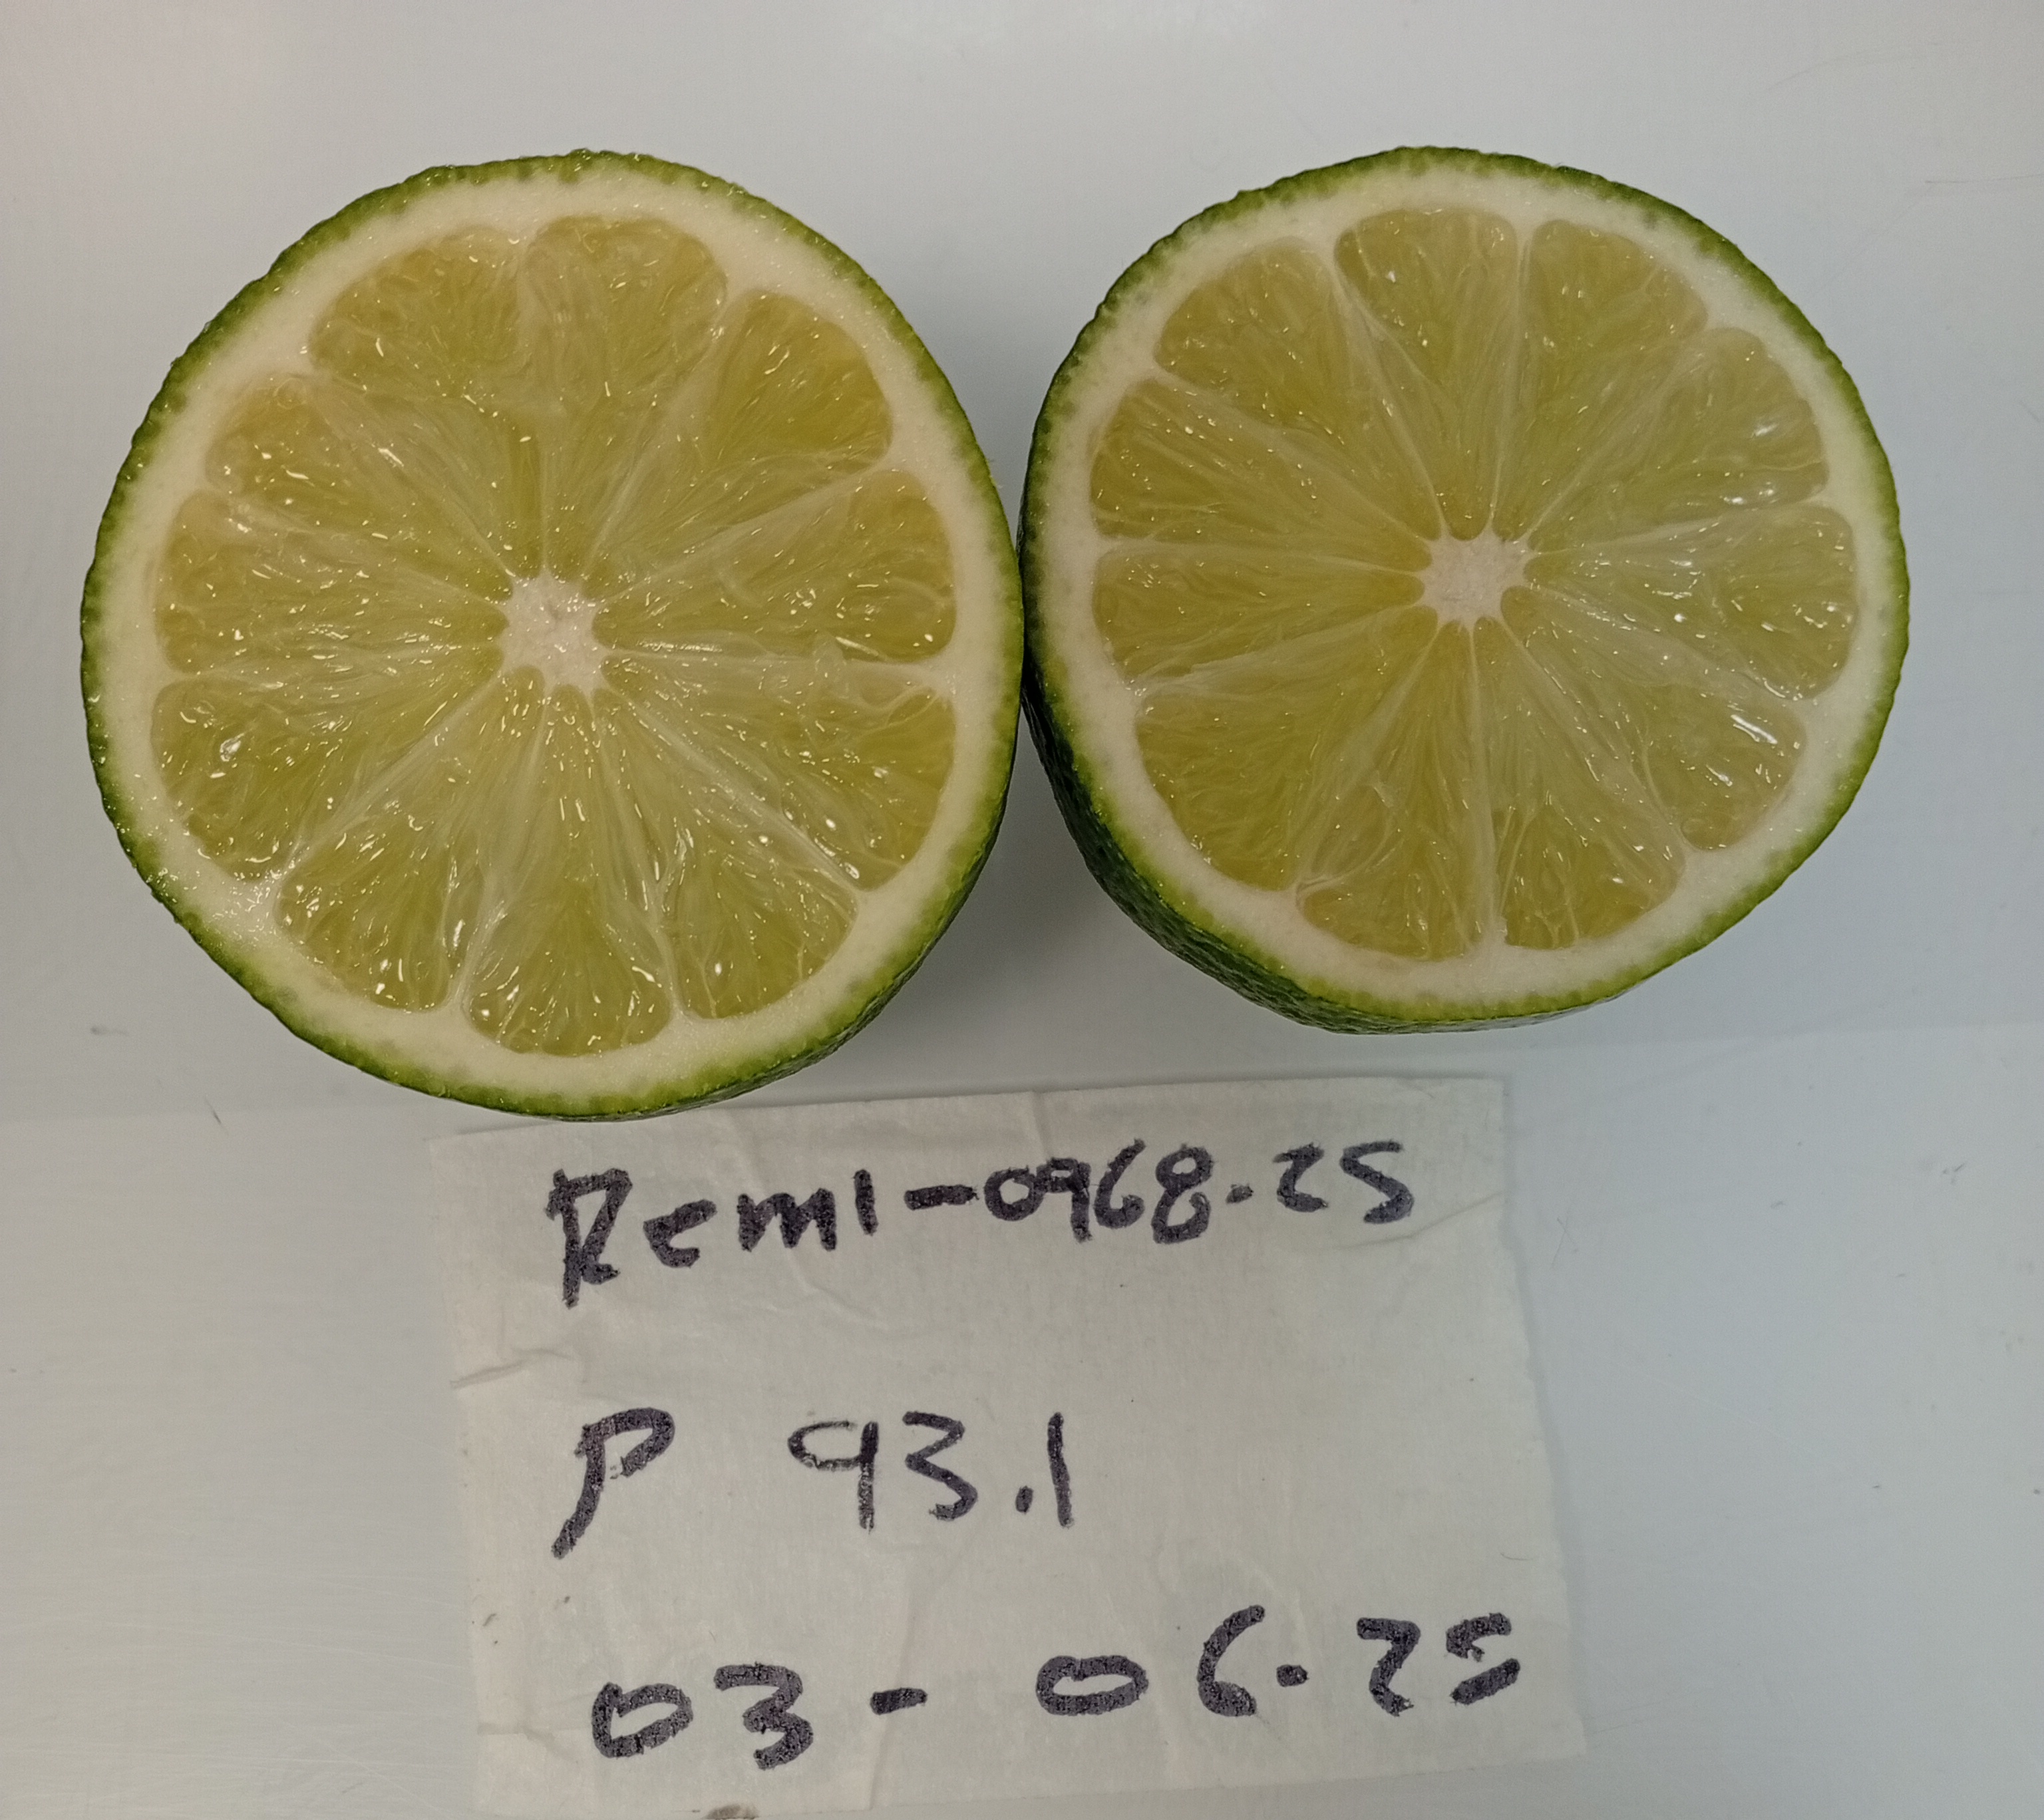 Remi-0968-25
P 93.1
03-06-25